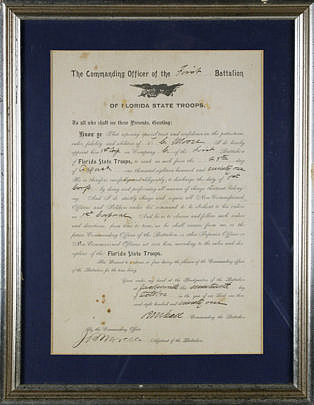 The Commanding Officer of the First Battalion
OF FLORIDA STATE TROOPS.
To all who shall see these Presents, Greeting:
Know ye That reposing special trust and confidence in the patriotism,
valor, fidelity and abilities of C. Moore I do hereby
appoint him 1st Cop in Company C, of the First Battalion
of Florida State Troops, to rank as such from the 25th
day of August one thousand eight hundred and ninety one
He is therefore carefully and diligently to discharge the duty of
by doing and performing all manner of things thereunto belong-
ing. And I do strictly charge and require all Non-Commissioned
Officers and Soldiers under his command to be obedient to his orders
as 1st Corporal And he is to observe and follow such orders
and directions, from time to time, as he shall receive from me, or the
future Commanding Officer of the Battalion or other Superior Officers
Non-Commissioned Officers set over him, according to the rules and dis-
cipline of the Florida State Troops.
This Warrant to continue in force during the pleasure of the Commanding Officer
of the Battalion for the time being.
Given under my hand at the Headquarters of the Battalion
at Jacksonville the seventeenth day
in the year of our Lord one thou-
sand eight hundred and ninety one
Commanding Officer
of the Battalion.
By the Commanding Officer
Adjutant of the Battalion.